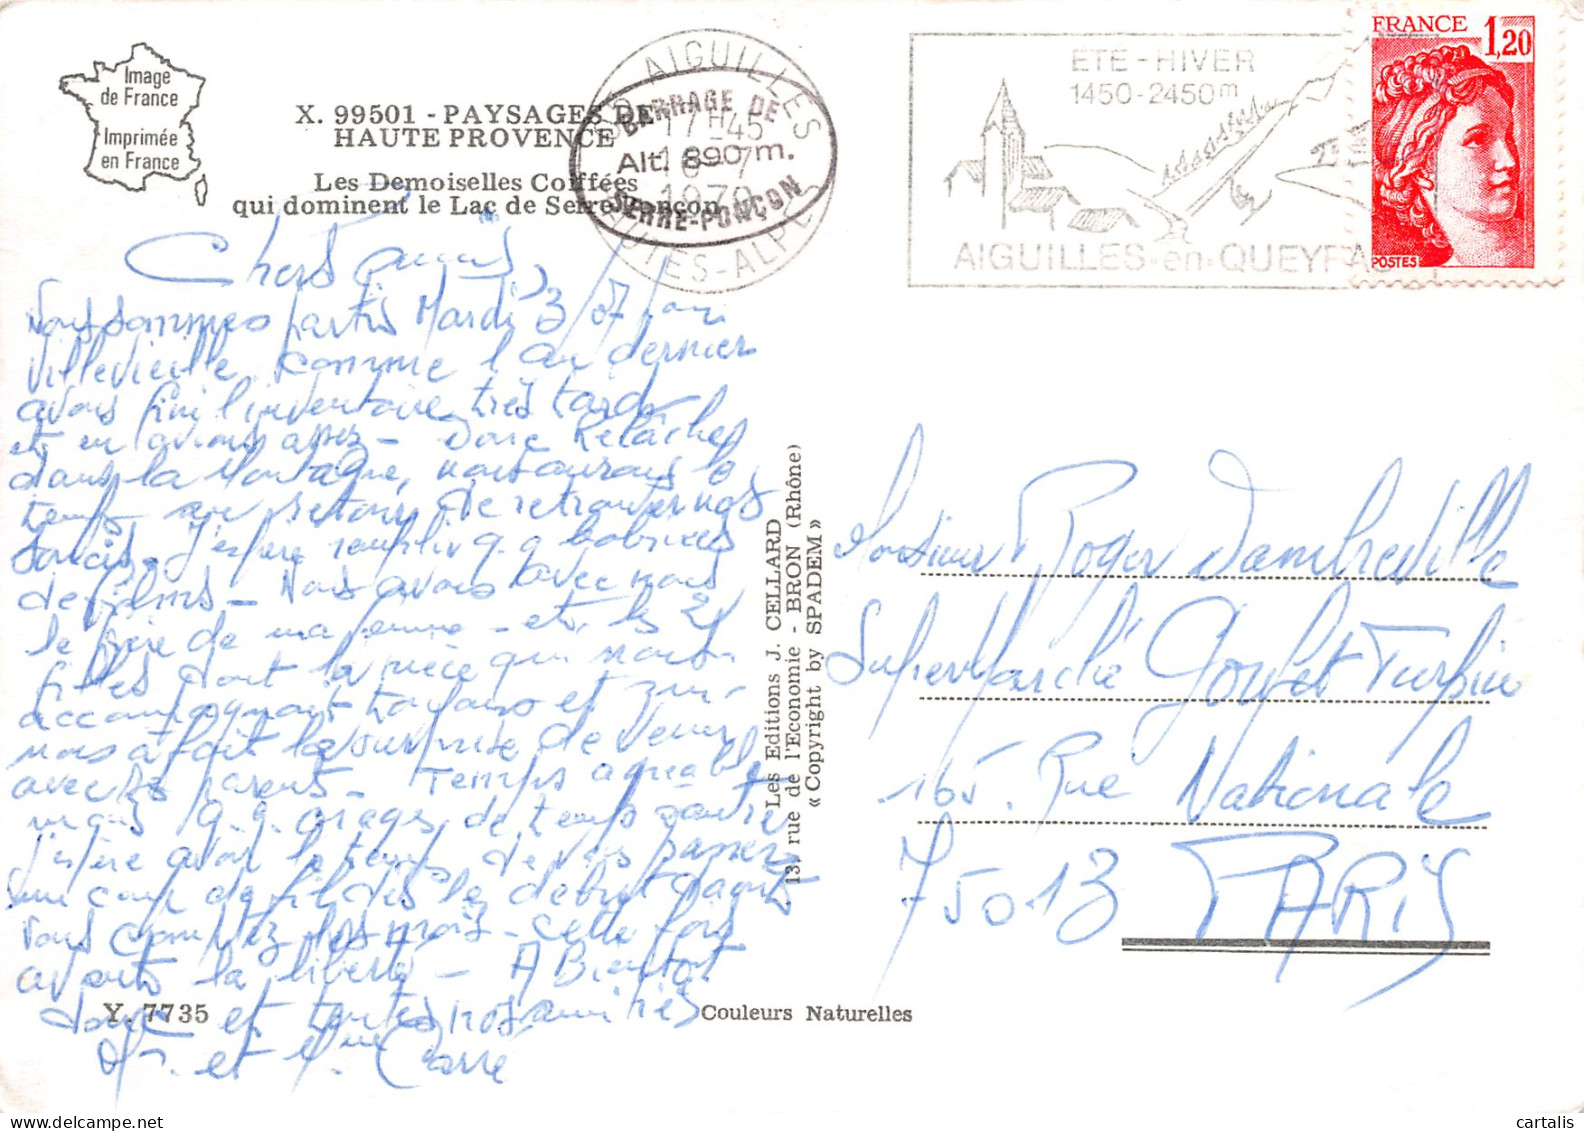 Image
de France
Imprimée
en France
X. 99501 - PAYSAGES DE
HAUTE PROVENCE
Les Demoiselles Coiffées
qui dominent le Lac de Serre-Ponçon
05 AIGUILLES
17H45
1979
HAUTES-ALPES
BARRAGE DE
Alt. 890 m.
SERRE-PONÇON
ETE - HIVER
1450-2450m
AIGUILLES-en-QUEYRAS
FRANCE
1,20
POSTES
Chers Amis,
Nous sommes partis Mardi 3/07 pour
Villevieille comme l'an dernier
avons fini l'inventaire très tard
et en avions assez - Donc Relâches
dans la Montagne, nous aurons le
temps au retour de retrouver nos
soucis. J'espère remplir q.q. bobines
de films - Nous avons avec nous
le frère de ma femme - et les 2
filles dont la nièce qui nous
accompagnait toujours et
nous a fait la surprise de venir
avec ses parents - Temps agréable
mais q.q. orages de temps à autre
J'espère avoir le temps de vous passer
un coup de fil dès le début Août
Vous comptez les mois - cette fois
avant la liberté - A Bientôt
donc et toutes nos amitiés
Mr. et Mme Carré
Y. 7735
Couleurs Naturelles
Les Editions J. CELLARD
13, rue de l'Economie - BRON (Rhône)
« Copyright by SPADEM »
Monsieur Roger Dambreville
SuperMarché Goulet Turpin
165. Rue Nationale
75013 PARIS
cartalis